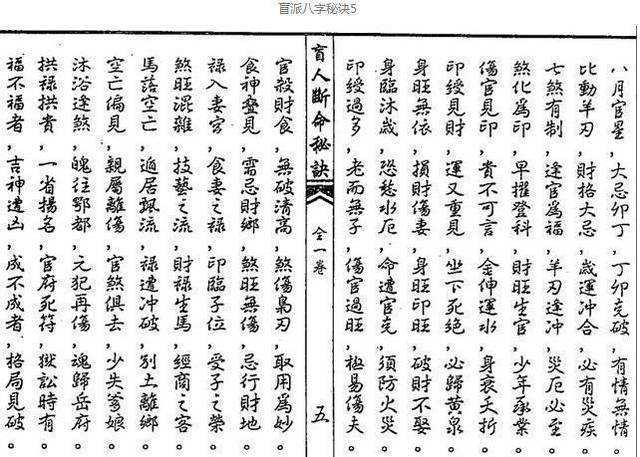 盲派八字秘诀5
八月官星，大忌卯丁，丁卯克破，有情無情。
比動羊刃，財格大忌，歲運冲合，必有災疾。
七煞有制，逢官爲福，羊刃逢冲，災厄必至。
煞化爲印，早擢登科，財旺生官，少年承業。
傷官見印，貴不可言，金伸運水，身衰夭折。
印綬見財，運又重見，坐下死絕，必歸黄泉。
身旺無依，損財傷妻，身旺印旺，破財不娶。
身臨沐歲，恐愁水厄，命遭官克，須防火災。
印綬過多，老而無子，傷官過旺，極易傷夫。
盲人斷命秘訣
全一卷
五
官殺財食，無破清高，煞傷梟刃，取用爲妙。
食神疊見，需忌財鄉，煞旺無傷，忌行財地。
禄入妻宮，食妻之禄，印臨子位，受子之榮。
煞旺混雜，技藝之流，財禄生馬，經商之客。
馬落空亡，遁居飄流，禄遭冲破，別土離鄉。
空亡偏見，親屬離傷，官煞俱去，少失爹娘。
沐浴逢煞，魄往鄂都，元犯再傷，魂歸岳府。
拱禄拱貴，一省揚名，官府死符，獄訟時有。
福不福者，吉神遭凶，成不成者，格局見破。